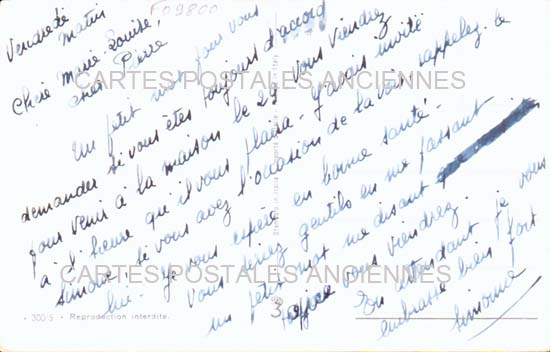 F09800
Vendredi
matin
Chère Marie Louise,
cher Pierre
Un petit mot pour vous
demander si vous êtes toujours d'accord
pour venir à la maison le 29 vous viendrez
à l'heure qu'il vous plaira - j'avais invité
Simone si vous avez l'occasion de la voir rappelez le
lui - Je vous espère en bonne santé -
Vous seriez gentils en me passant
un petit mot me disant
que vous viendrez.
En attendant je vous
embrasse bien fort
Simonne
CARTES POSTALES ANCIENNES
CARTES POSTALES ANCIENNES
3
• 300/5 • Reproduction interdite.